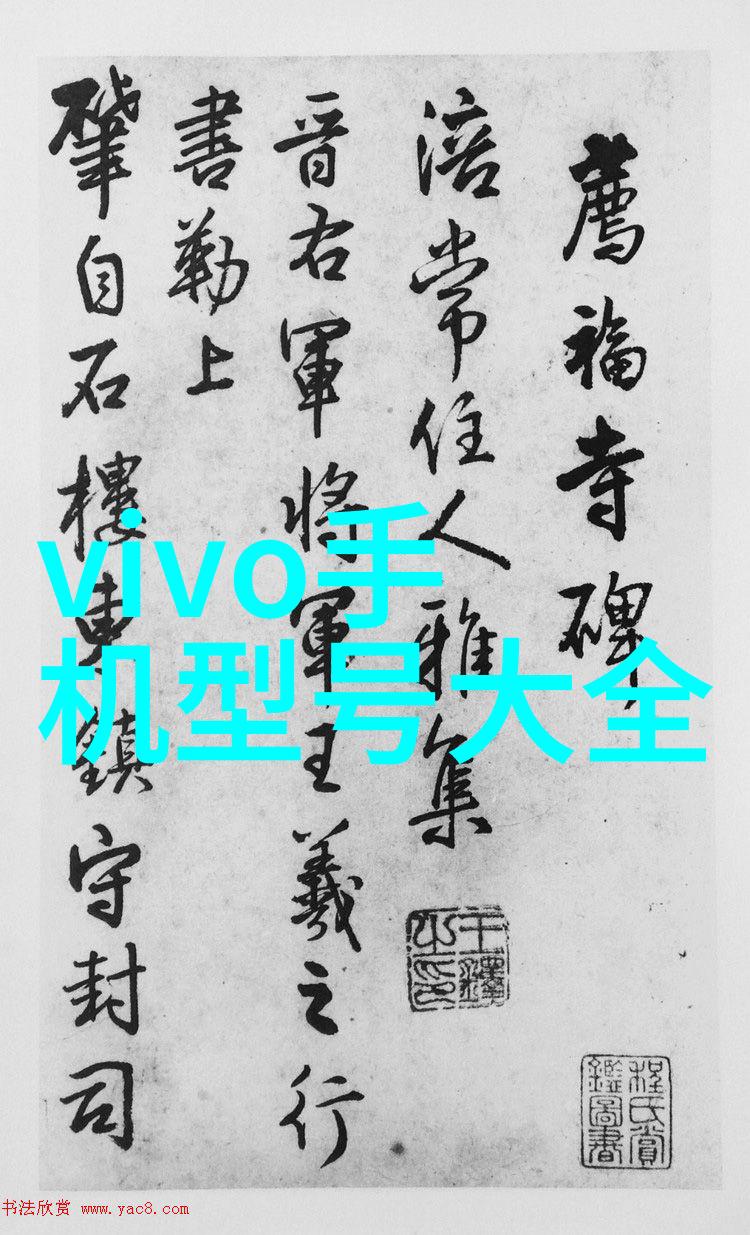 薦福寺碑
涪常住人雅集
王鐸之印
程氏賞鑑圖書
晋右軍将軍王羲之行
書勒上
肇自石樓東鎮守封司
vivo手
机型号大全
书法欣赏 www.yac8.com